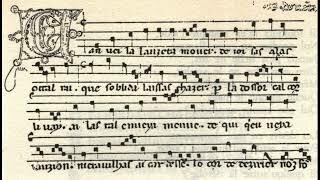 Can vei la lauzeta mover . de ioi sas alas
contral rai . que soblida laissas chazer . p la dossor cal cor
li vai . ai las tal enveia menve . de qui qeu veia
iauzion . meravilhas ai car desse . lo cor de dezirier nom fo